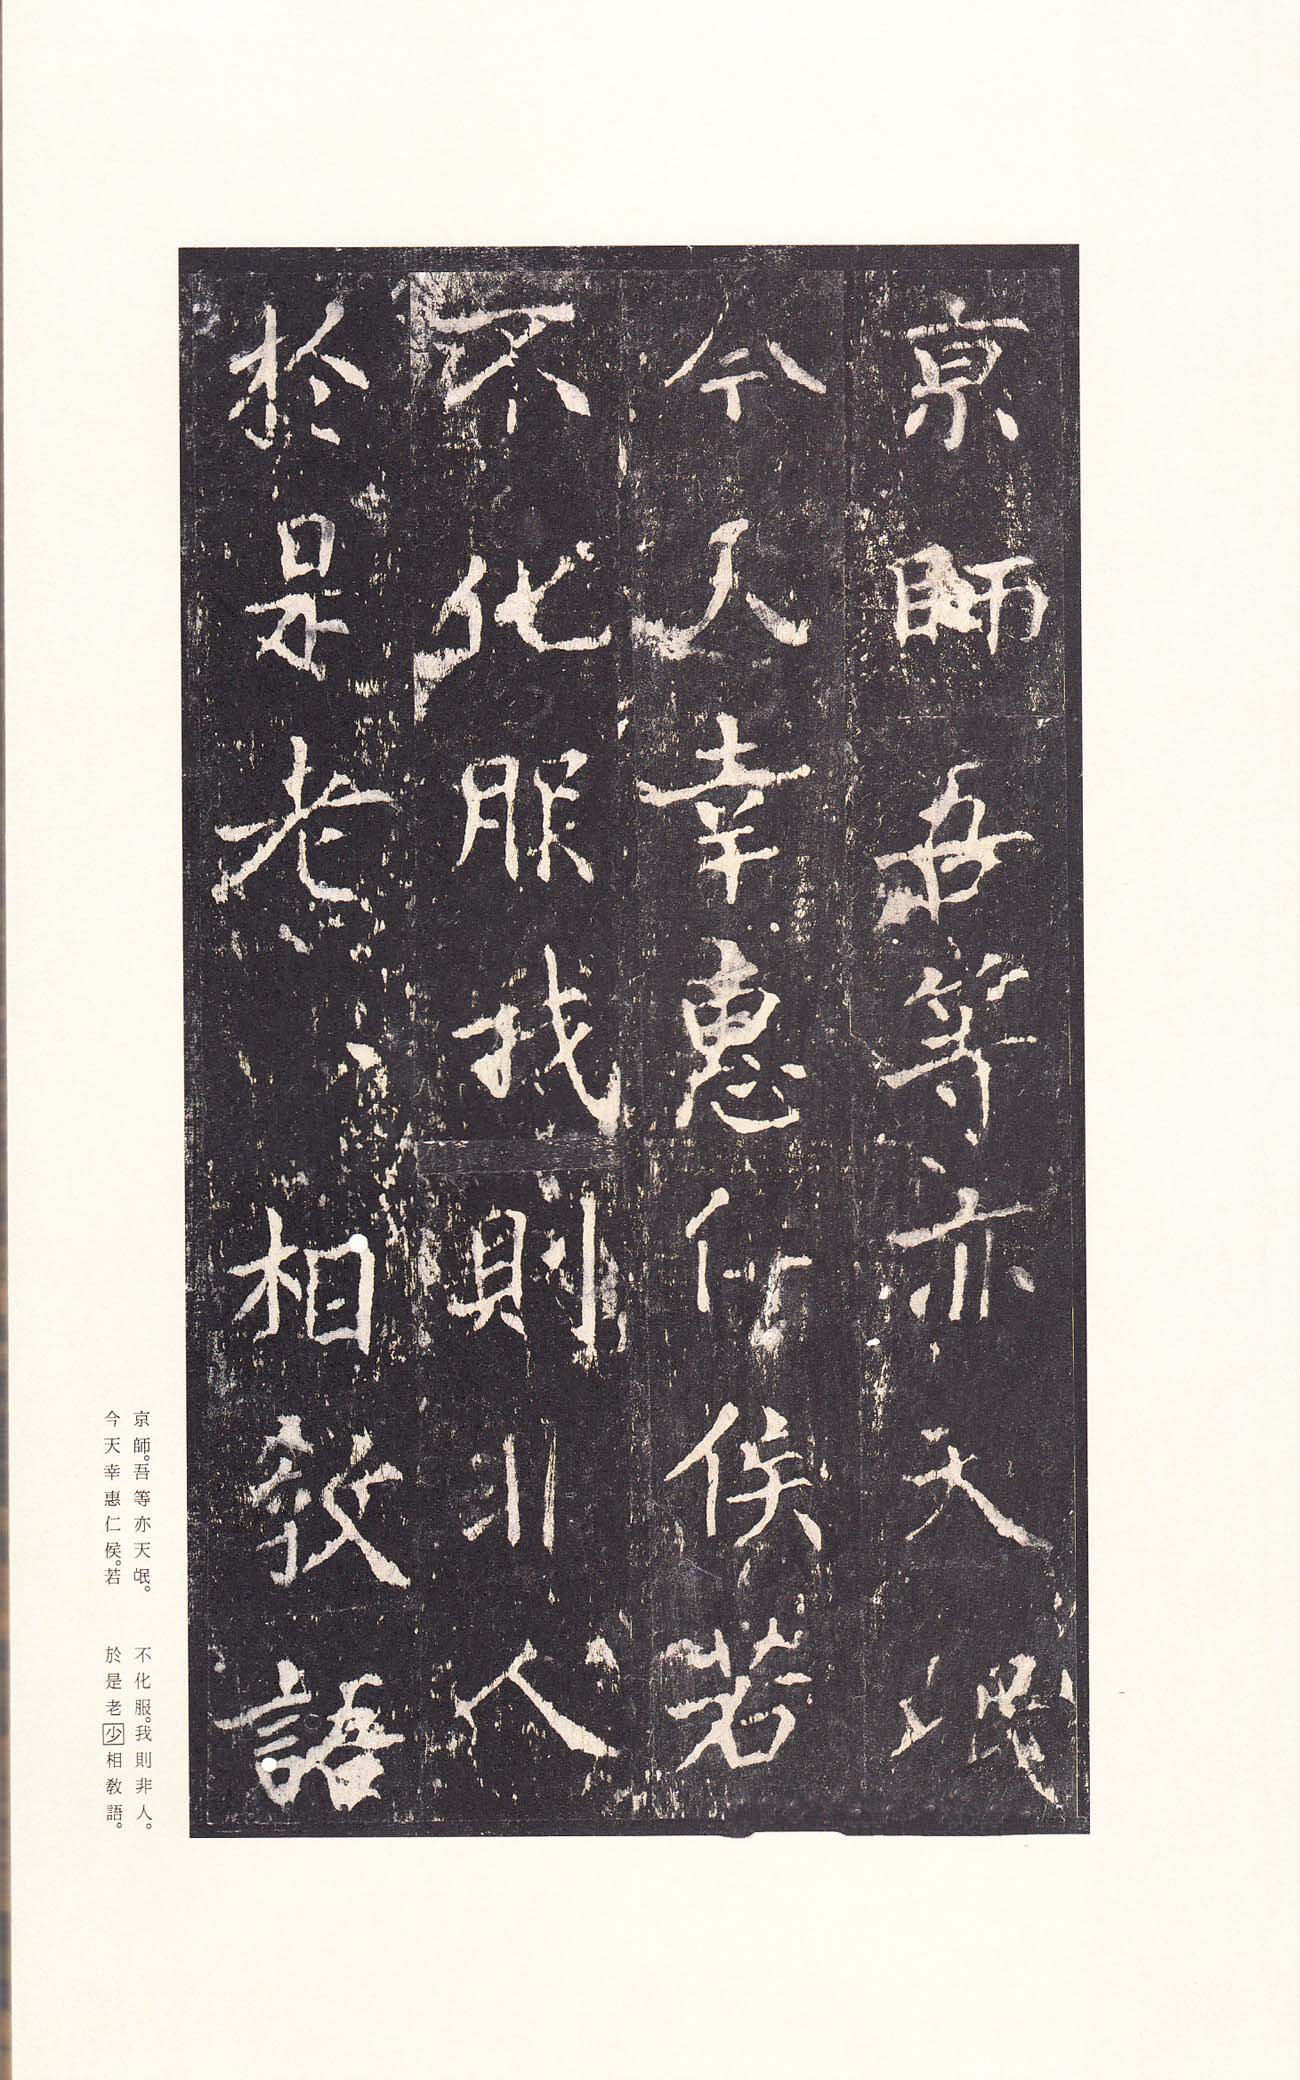 京師吾等亦天氓
今天幸惠仁侯若
不化服我則非人
於是老相教語
京師。吾等亦天氓。
今天幸惠仁侯。若
不化服。我則非人。
於是老少相教語。